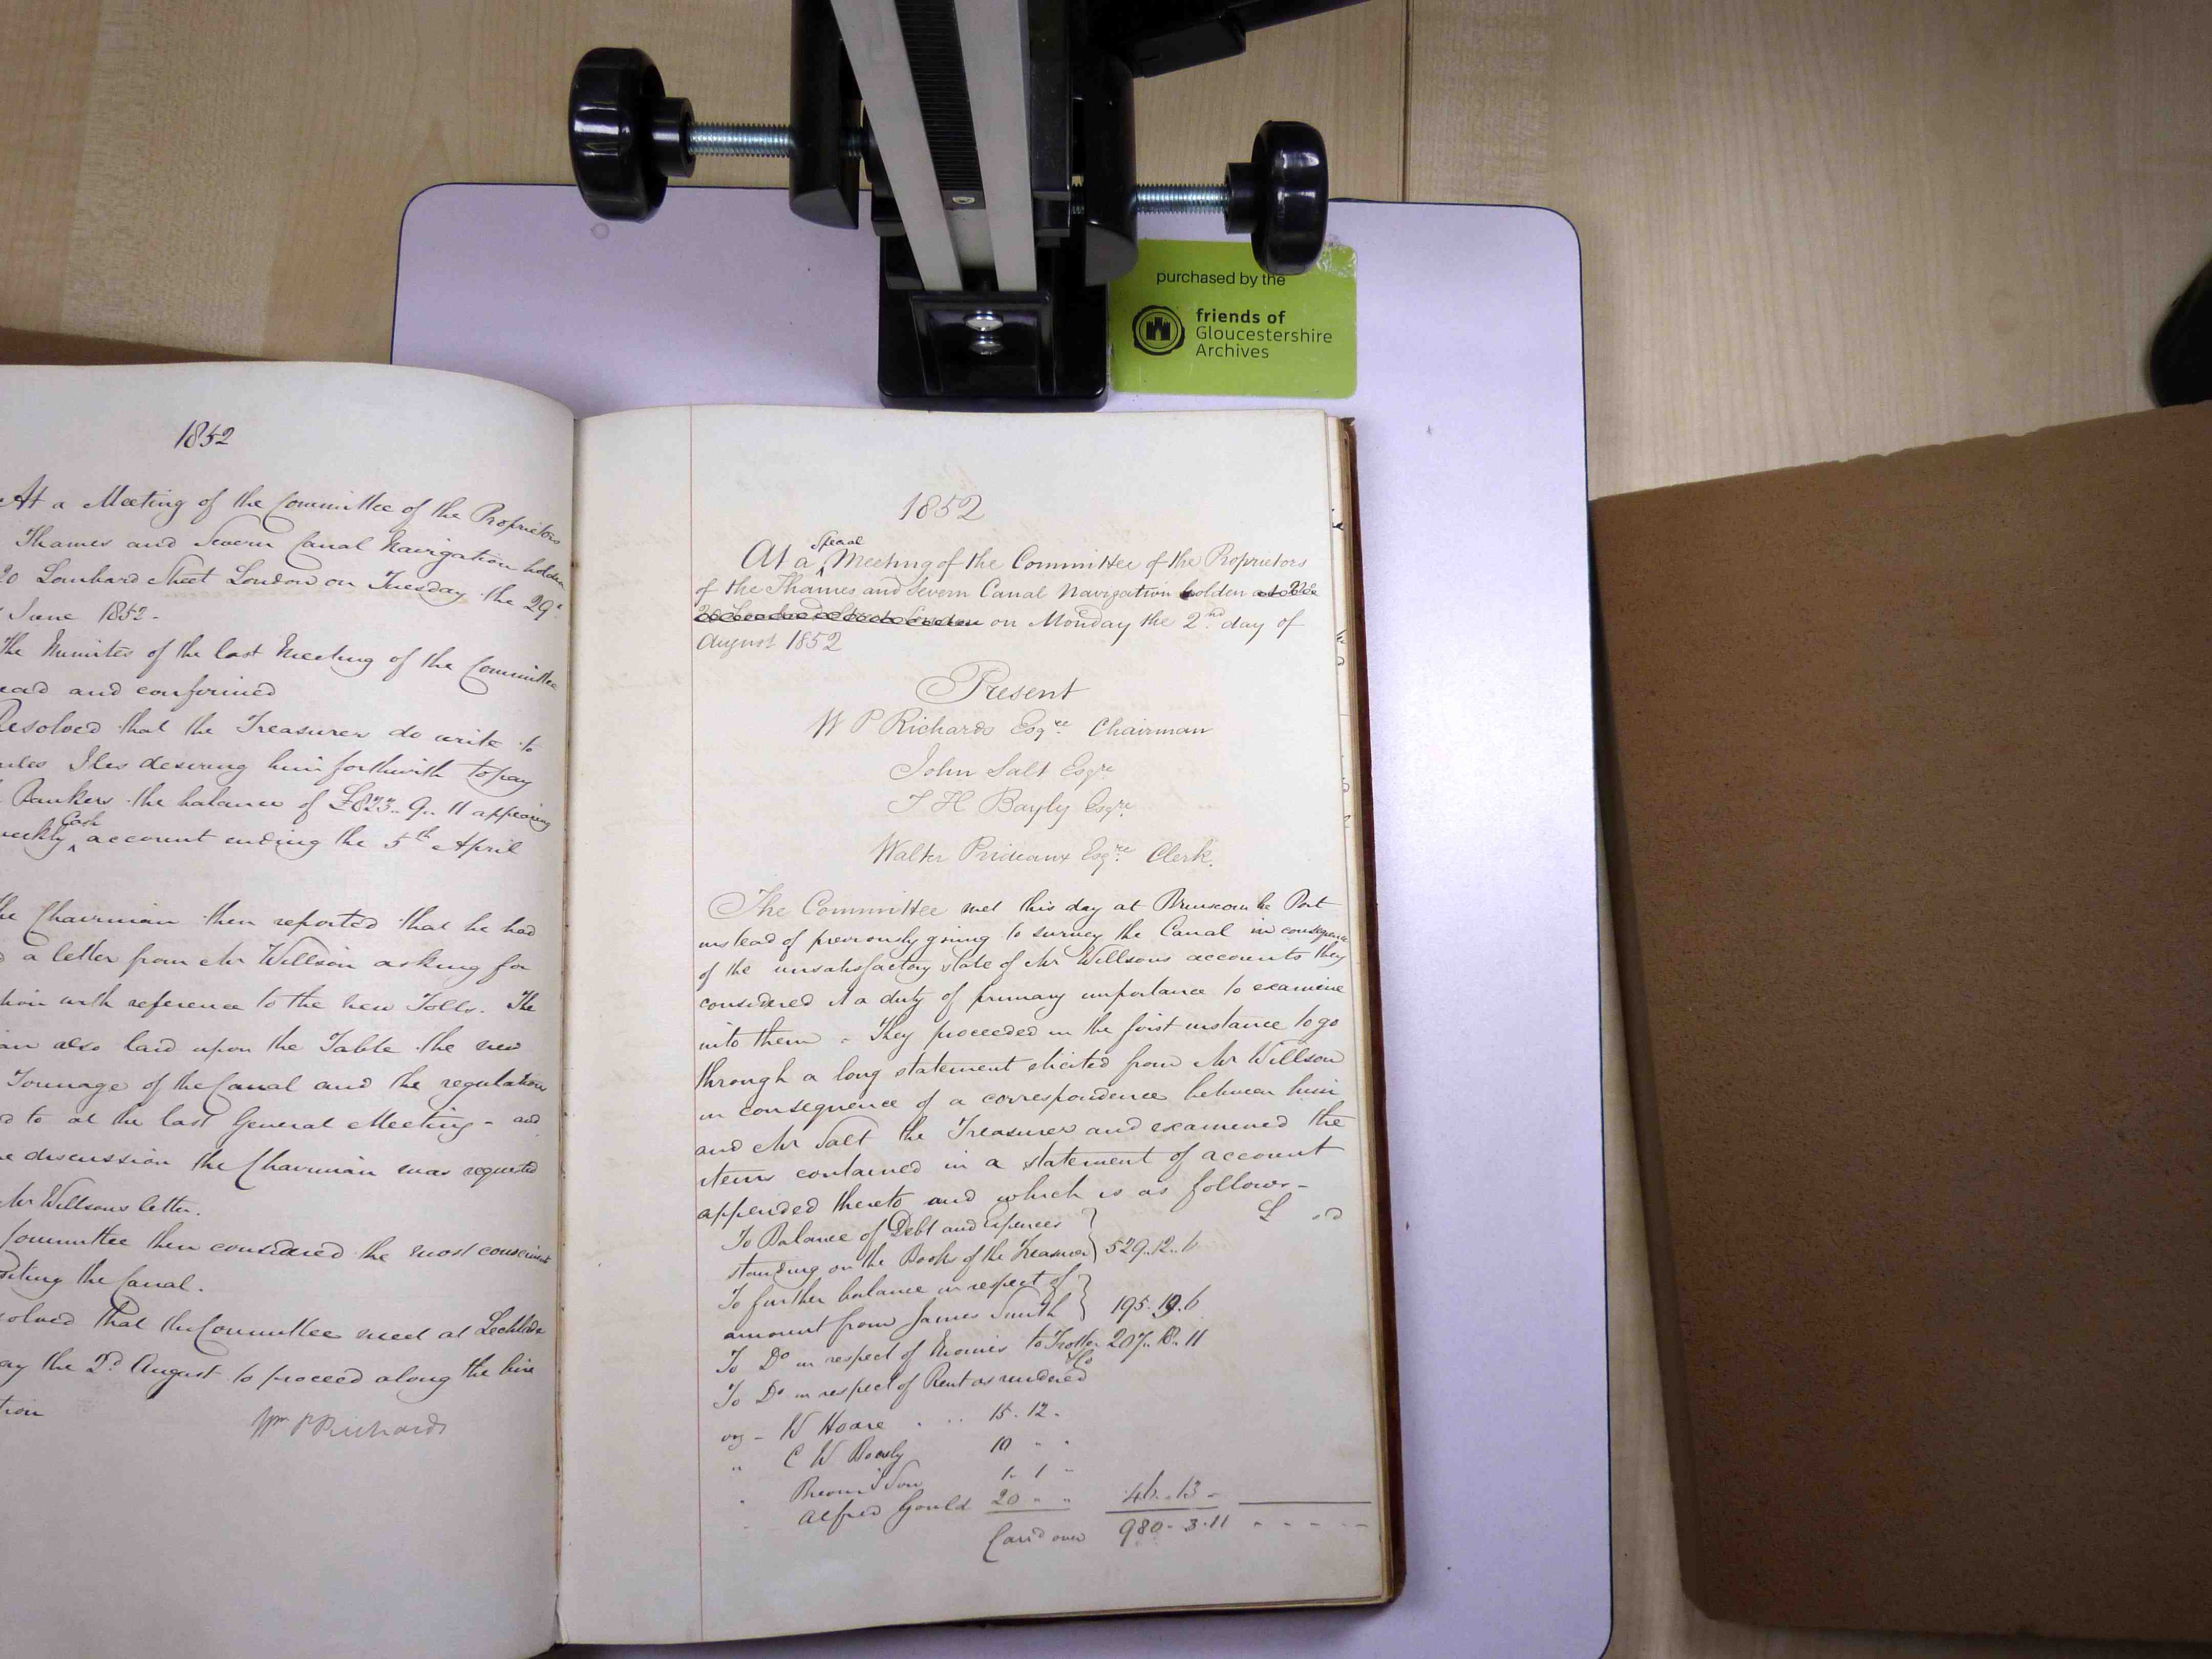 purchased by the
friends of
Gloucestershire
Archives
1852
At a Meeting of the Committee of the Proprietors
Thames and Severn Canal Navigation holden
20 Lombard Street London on Tuesday the 29th
June 1852.
The Minutes of the last Meeting of the Committee
read and confirmed
Resolved that the Treasurer do write to
Iles desiring him forthwith to pay
Bankers the balance of £823.. 9.. 11 appearing
weekly Cash account ending the 5th April
the Chairman then reported that he had
a letter from Mr Willson asking for
with reference to the new Tolls. The
also laid upon the Table the new
Tonnage of the Canal and the regulation
to at the last General Meeting - and
discussion the Chairman was requested
Mr Willsons letter.
Committee then considered the most convenient
the Canal.
Resolved that the Committee meet at Lechlade
the 2d August to proceed along the line
Wm P Richards
1852
At a Special Meeting of the Committee of the Proprietors
of the Thames and Severn Canal Navigation holden at No
20 Lombard Street London on Monday the 2nd day of
August 1852
Present
W P Richards Esqre Chairman
John Salt Esqre
T H Bayly Esqre
Walter Prideaux Esqre Clerk.
The Committee met this day at Brimscombe Port
instead of previously going to survey the Canal in consequence
of the unsatisfactory state of Mr Willsons accounts they
considered it a duty of primary importance to examine
into them - They proceeded in the first instance to go
through a long statement elicited from Mr Willson
in consequence of a correspondence between him
and Mr Salt the Treasurer and examined the
items contained in a statement of account
appended thereto and which is as follows -
£ s d
To Balance of Debt and expences
standing on the Books of the Treasurer } 529..12..6
To further balance in respect of
amount from James Smith } 195.19.6
To Do in respect of Monies to Trotter & Co 207.18.11
To Do in respect of Rent as rendered
viz - W Hoare . . . 15.12.
" C W 10 " "
" 1. 1 "
" Alfred Gould 20 " " 46..13 -
Carrd over 980.3.11